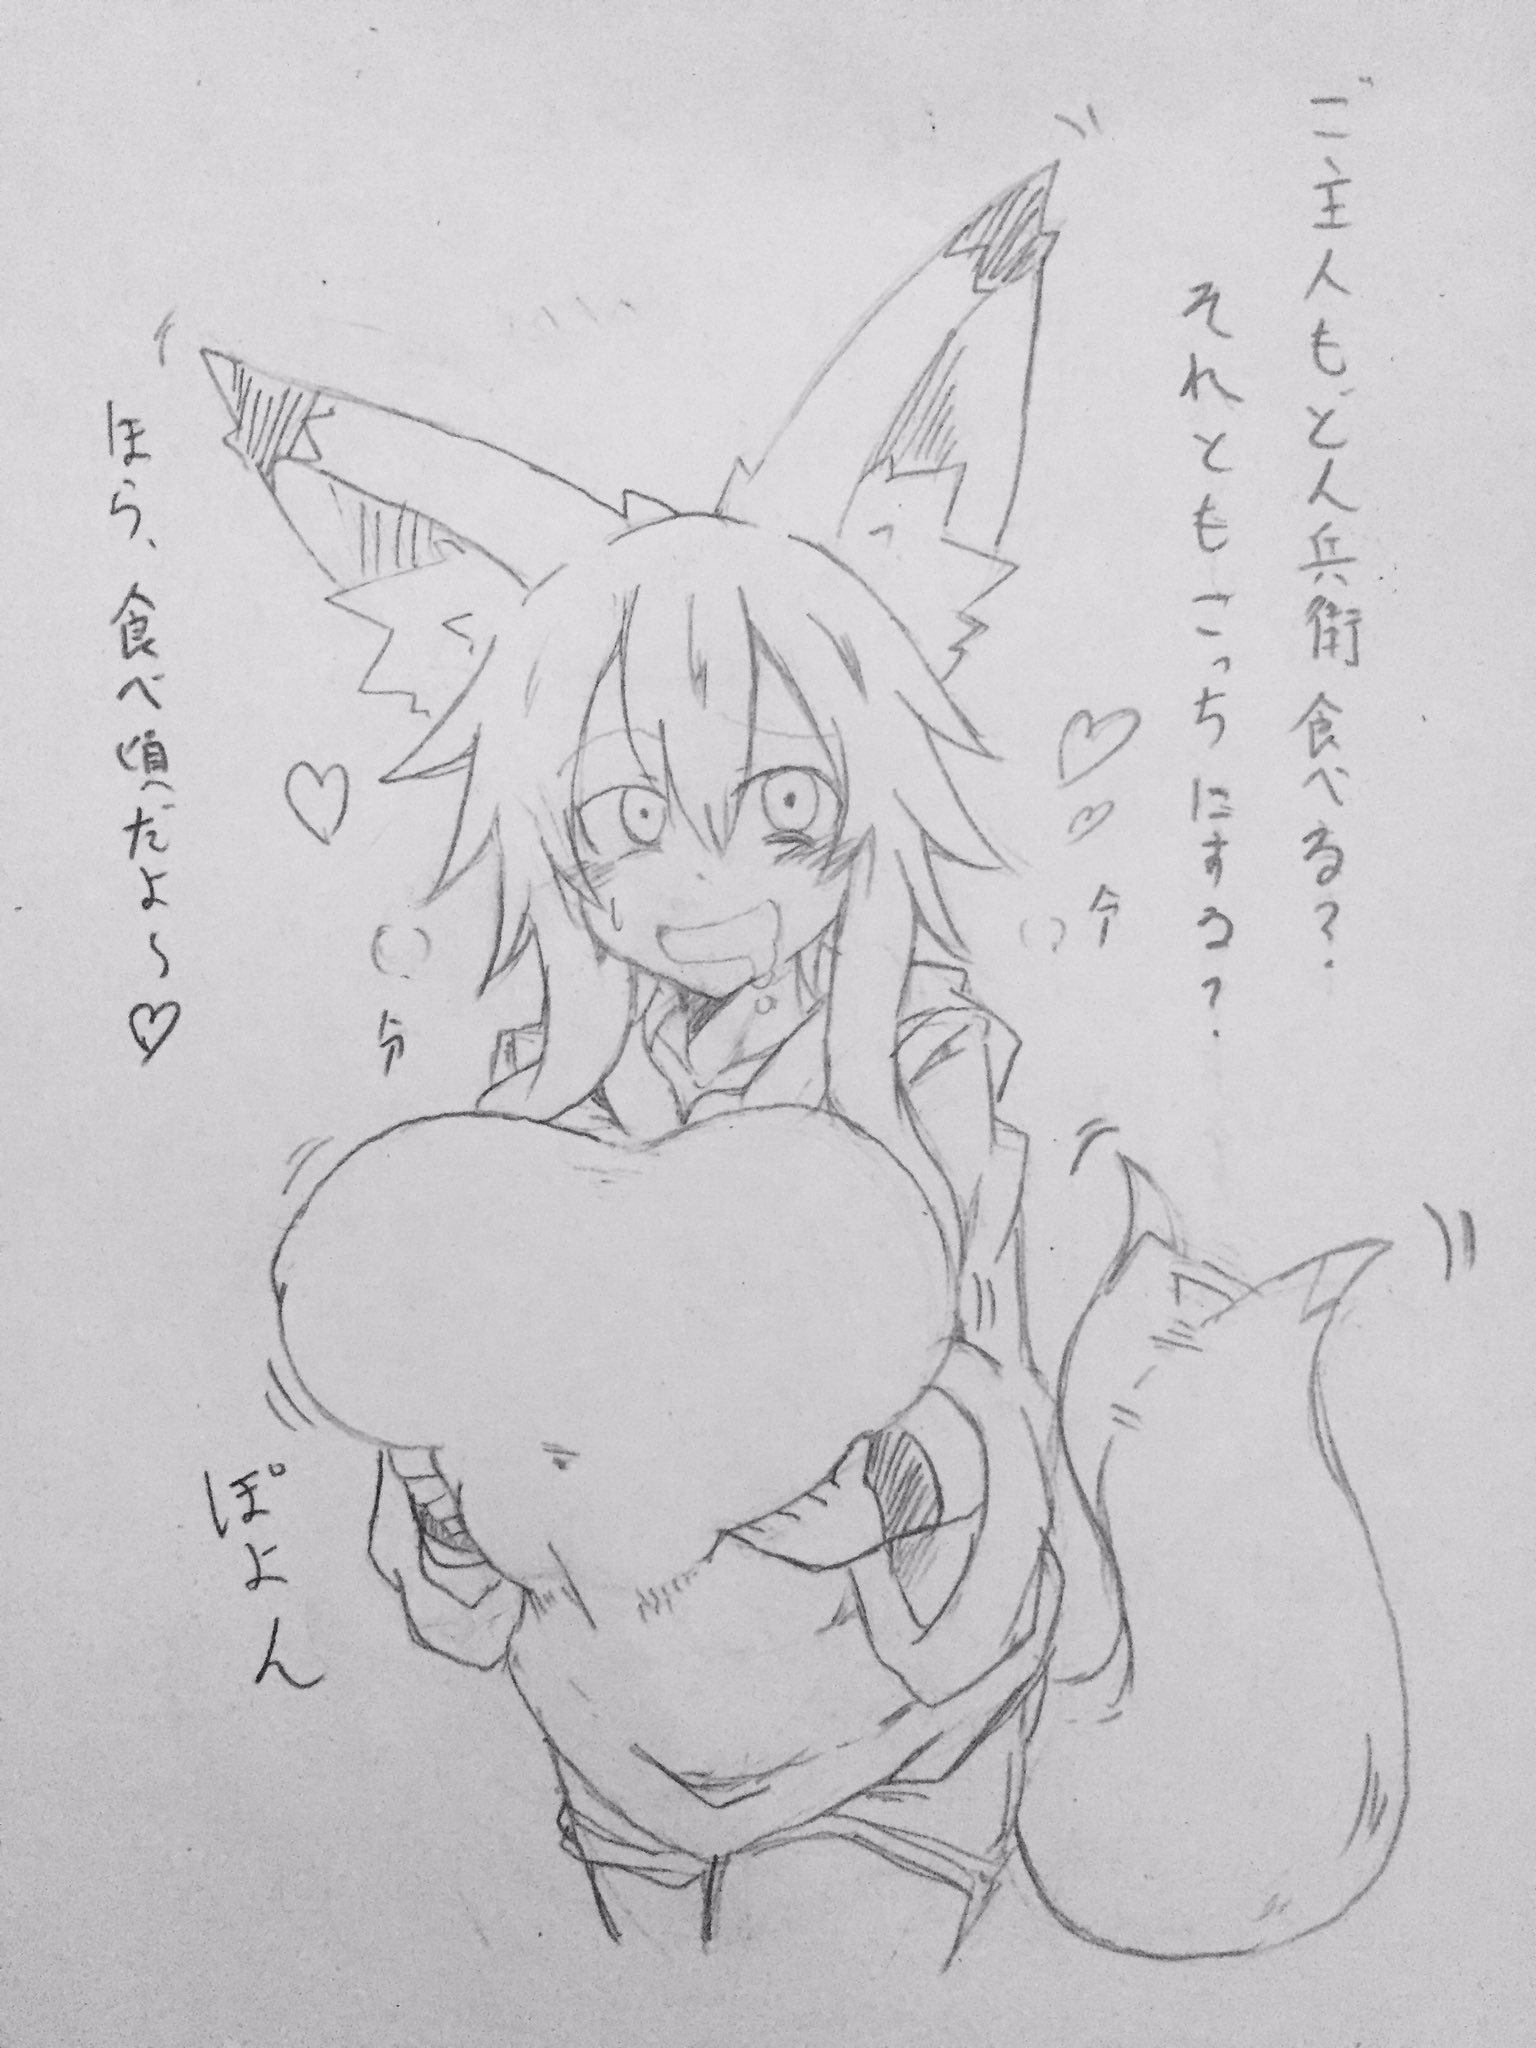 ご主人もどん兵衛食べる？
それともこっちにする？
ほら、食べ頃だよ〜♡
ぽよん